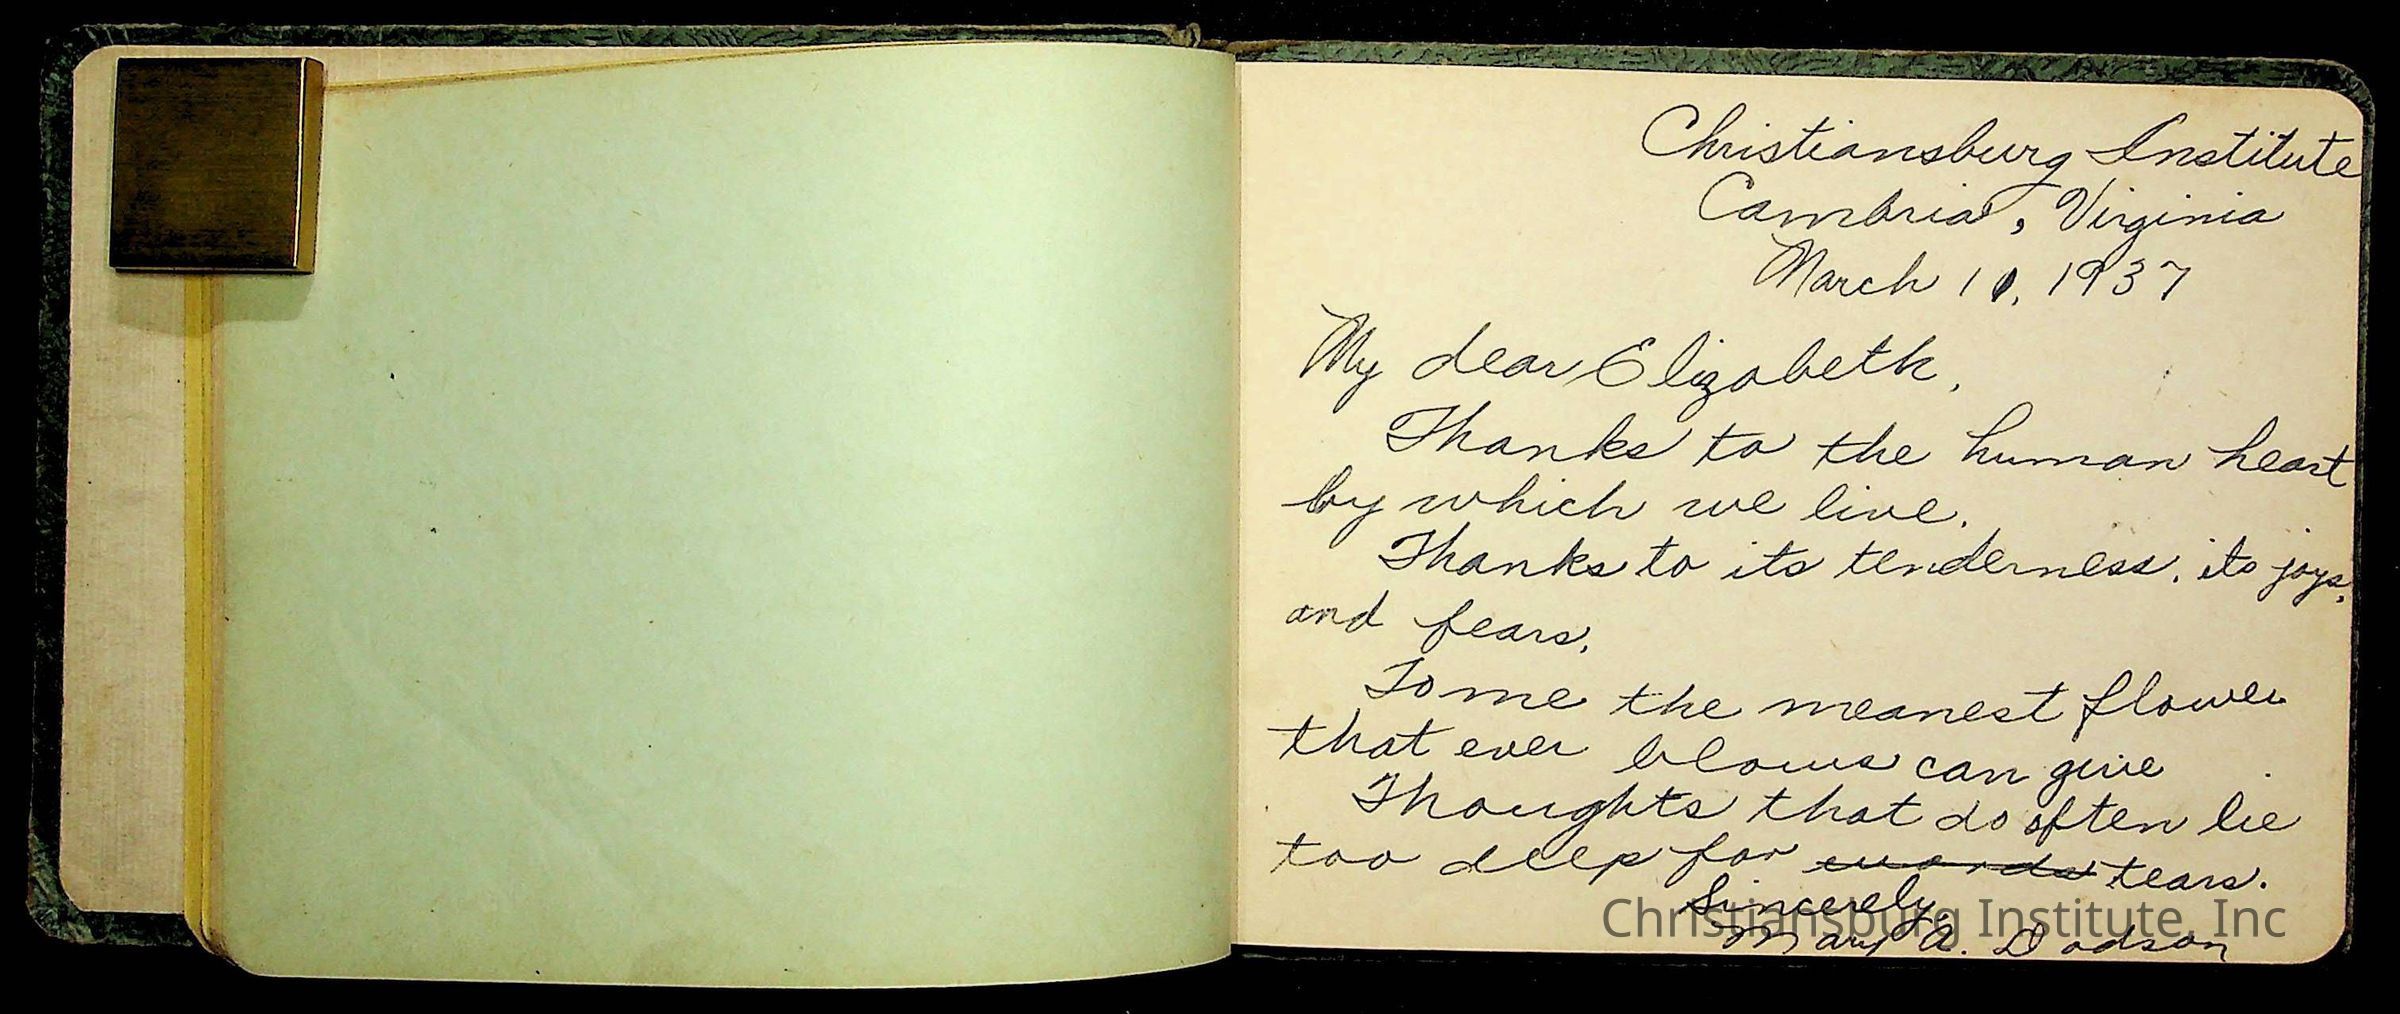 Christiansburg Institute
Cambria, Virginia
March 10, 1937
My dear Elizabeth,
Thanks to the human heart
by which we live.
Thanks to its tenderness, its joys,
and fears.
To me the meanest flower
that ever blows can give
Thoughts that do often lie
too deep for words tears.
Sincerely,
Christiansburg Institute, Inc
Mary A. Dodson